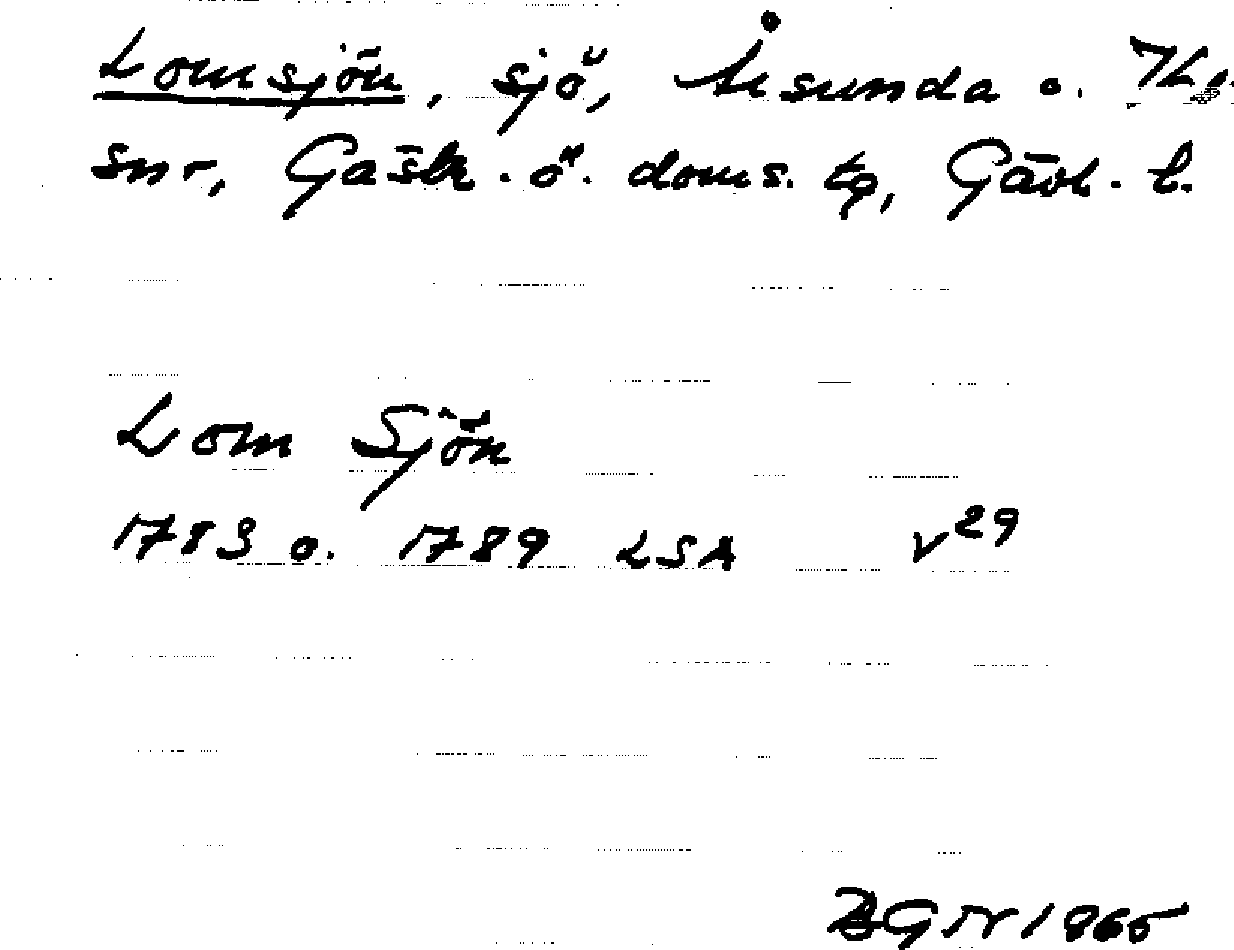 Lomsjön, sjö, Årsunda o.
snr, Gästr. ö. doms. tg, Gävl. l.
Lom Sjön
1783 o. 1789 LSA V29
1965